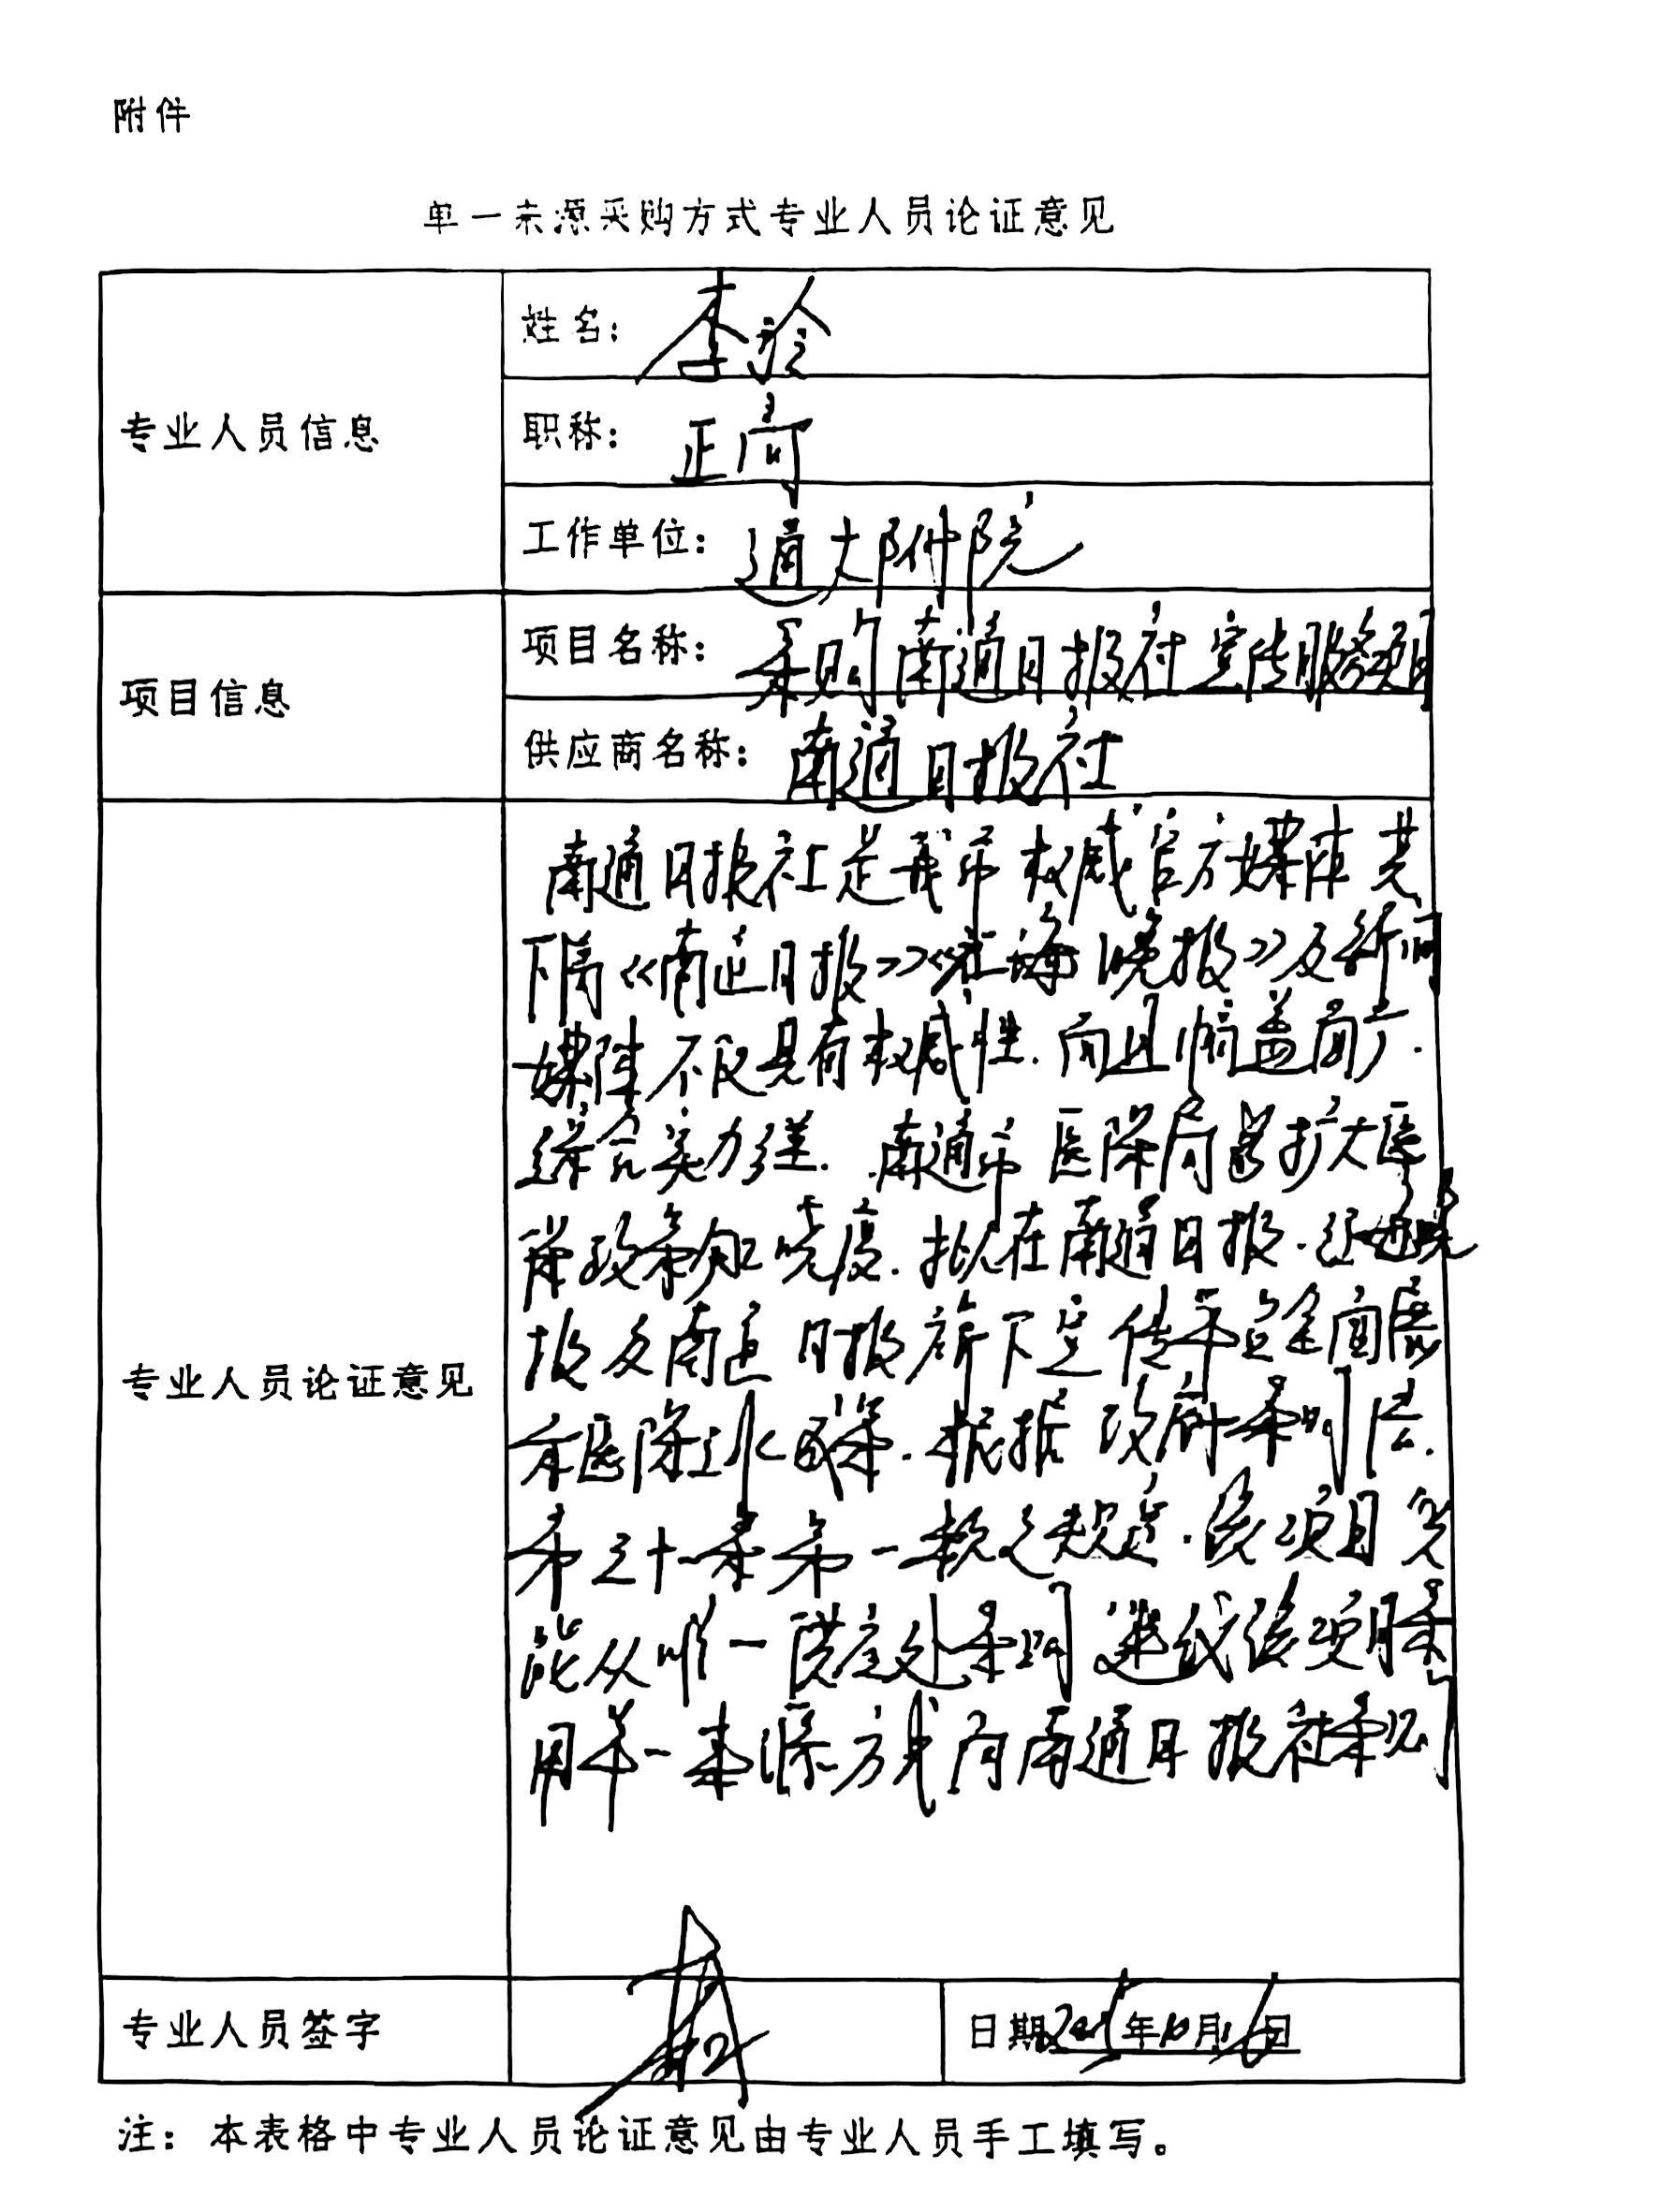 附件
单一来源采购方式专业人员论证意见
专业人员信息
姓名：李玲
职称：正高
工作单位：通大附院
项目信息
项目名称：采购南通日报社宣传服务项目
供应商名称：南通日报社
专业人员论证意见
南通日报社是我市权威官方媒体其
下属《南通日报》《江海晚报》及新闻
媒体不仅具有权威性.而且幅盖面广.
综合实力强.南通市医保局为扩大医
保政策知晓度.拟在南通日报.江海晚
报及南通日报旗下宣传平台全面展
示医保工作政策.根据政府采购法.
第三十一条第一款之规定.该项目只
能从唯一供应处采购 建议该项目采
用单一来源方式向南通日报社采购
专业人员签字
日期2025年10月16日
注：本表格中专业人员论证意见由专业人员手工填写。